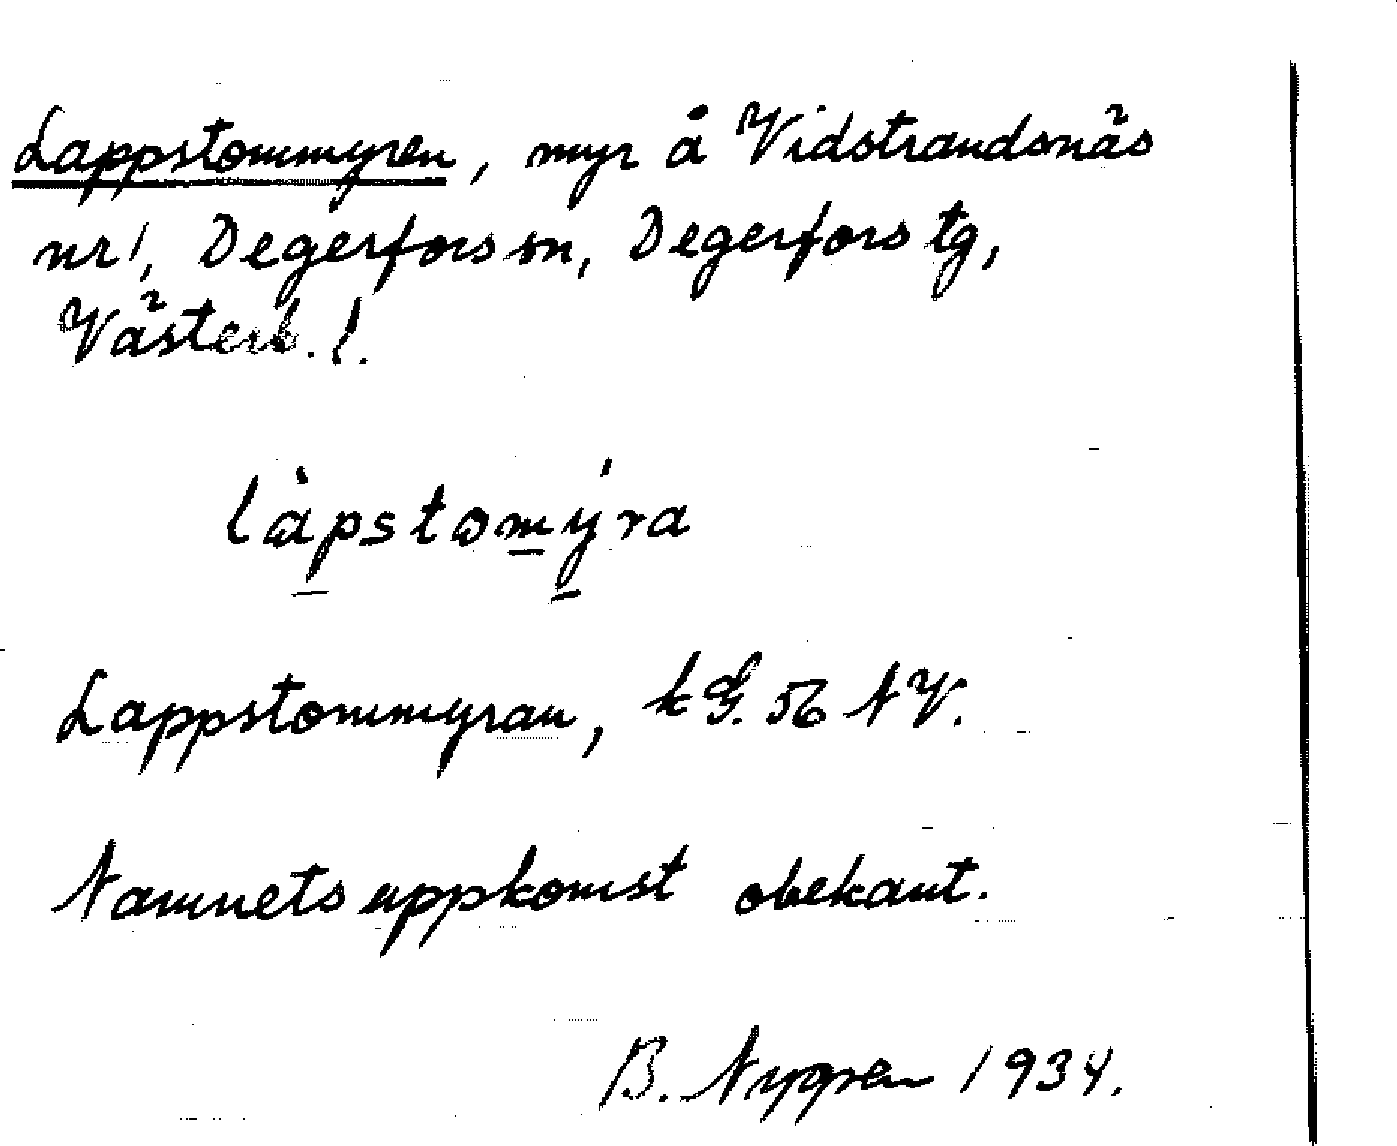 Lappstommyren, myr å Vidstrandsnäs
nr 1, Degerfors sn, Degerfors tg,
Västerb. l.
làpstomýra
Lappstommyran, kG. 56 NV.
Namnets uppkomst obekant.
B. Nygren 1934.